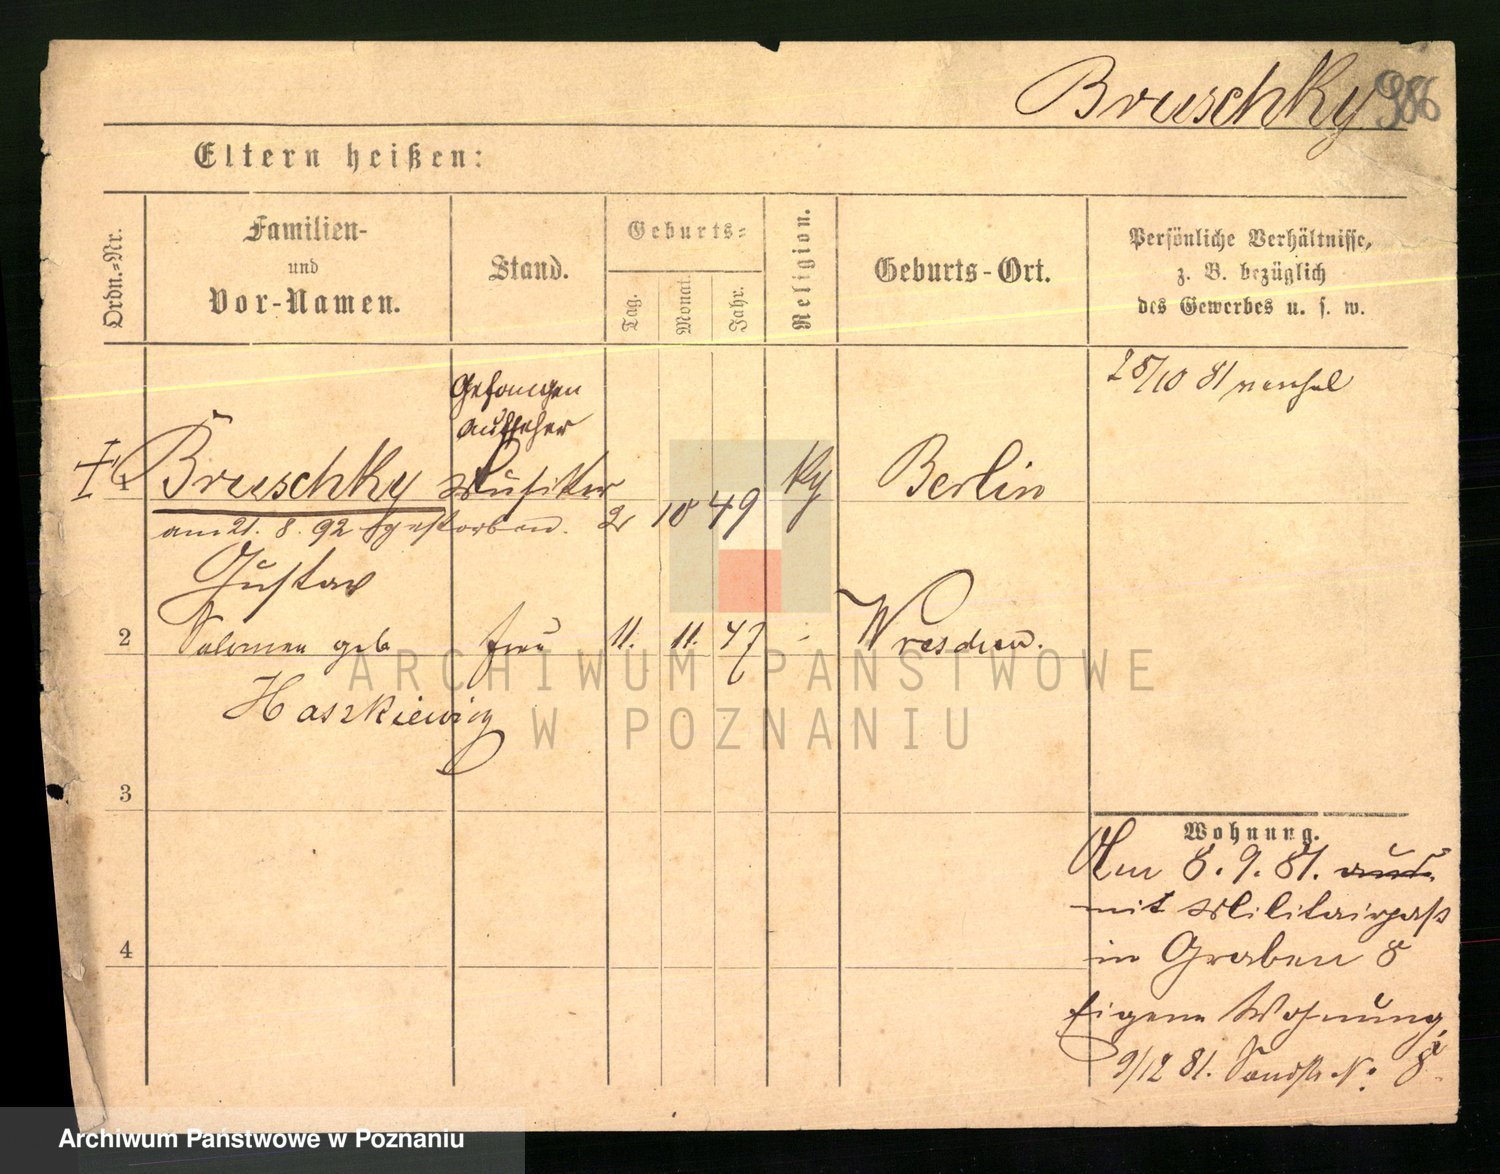 Bruschky 986
Eltern heißen:
Ordn.-Nr.
Familien-
und
Vor-Namen.
Stand.
Geburts-
Tag.
Monat.
Jahr.
Religion.
Geburts-Ort.
Persönliche Verhältnisse,
z. B. bezüglich
des Gewerbes u. s. w.
Gefangen
Aufseher
1 Bruschky Musiker 2 10 49 Berlin
am 21. 8. 92 gestorben.
Gustav
2 Salomea geb Frau 11. 11. 47 - Wreschen.
Haszkiewicz
3
4
Wohnung.
Am 8. 9. 81. aus
mit Militairpaß
in Graben 8
Eigene Wohnung
9/12 81. Sandstr No 8
ARCHIWUM PAŃSTWOWE
W POZNANIU
Archiwum Państwowe w Poznaniu